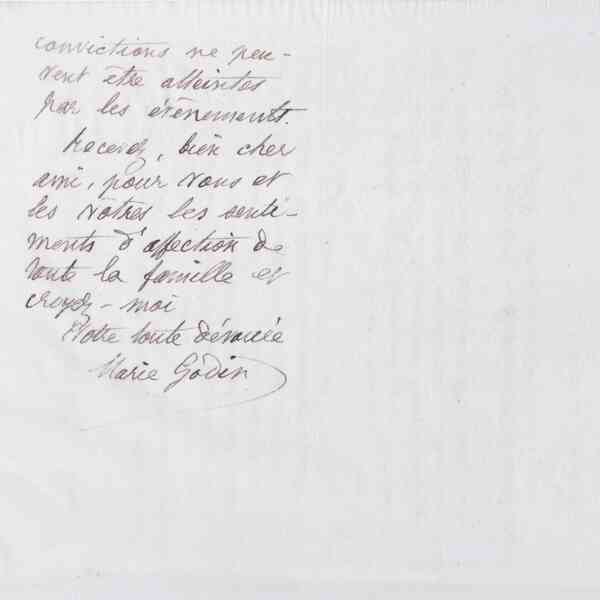 convictions ne peu-
vent être atteintes
par les évènements.
Recevez, bien cher
ami, pour vous et
les vôtres les senti-
ments d'affection de
toute la famille et
croyez-moi
Votre toute dévouée
Marie Godin